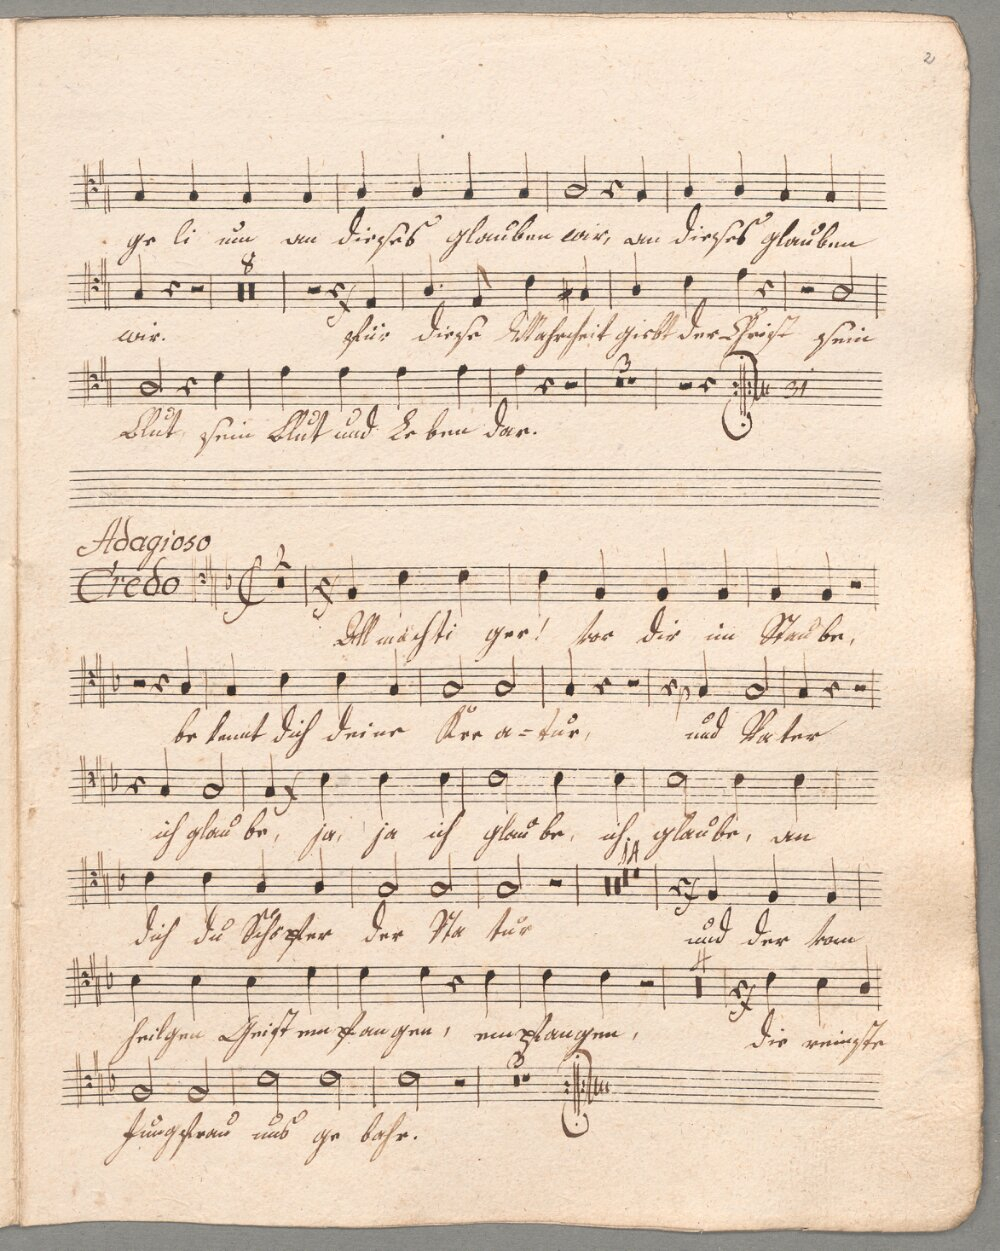 2
ge li um an dieses glauben wir, an dieses glauben
8
wir. für diese Wahrheit giebt der Christ sein
3
31
Blut, sein Blut und Le ben dar.
Adagioso
Credo
2
All mächti ger! vor dir im Staube,
be kennt dich deine Kre a=tur, und Vater
ich glau be, ja, ja ich glau be, ich glaube, an
14
dich du Schöpfer der Na tur und der vom
4
heilgen Geist em pfan gen, empfangen, die reinste
3
Jungfrau uns ge bahr.